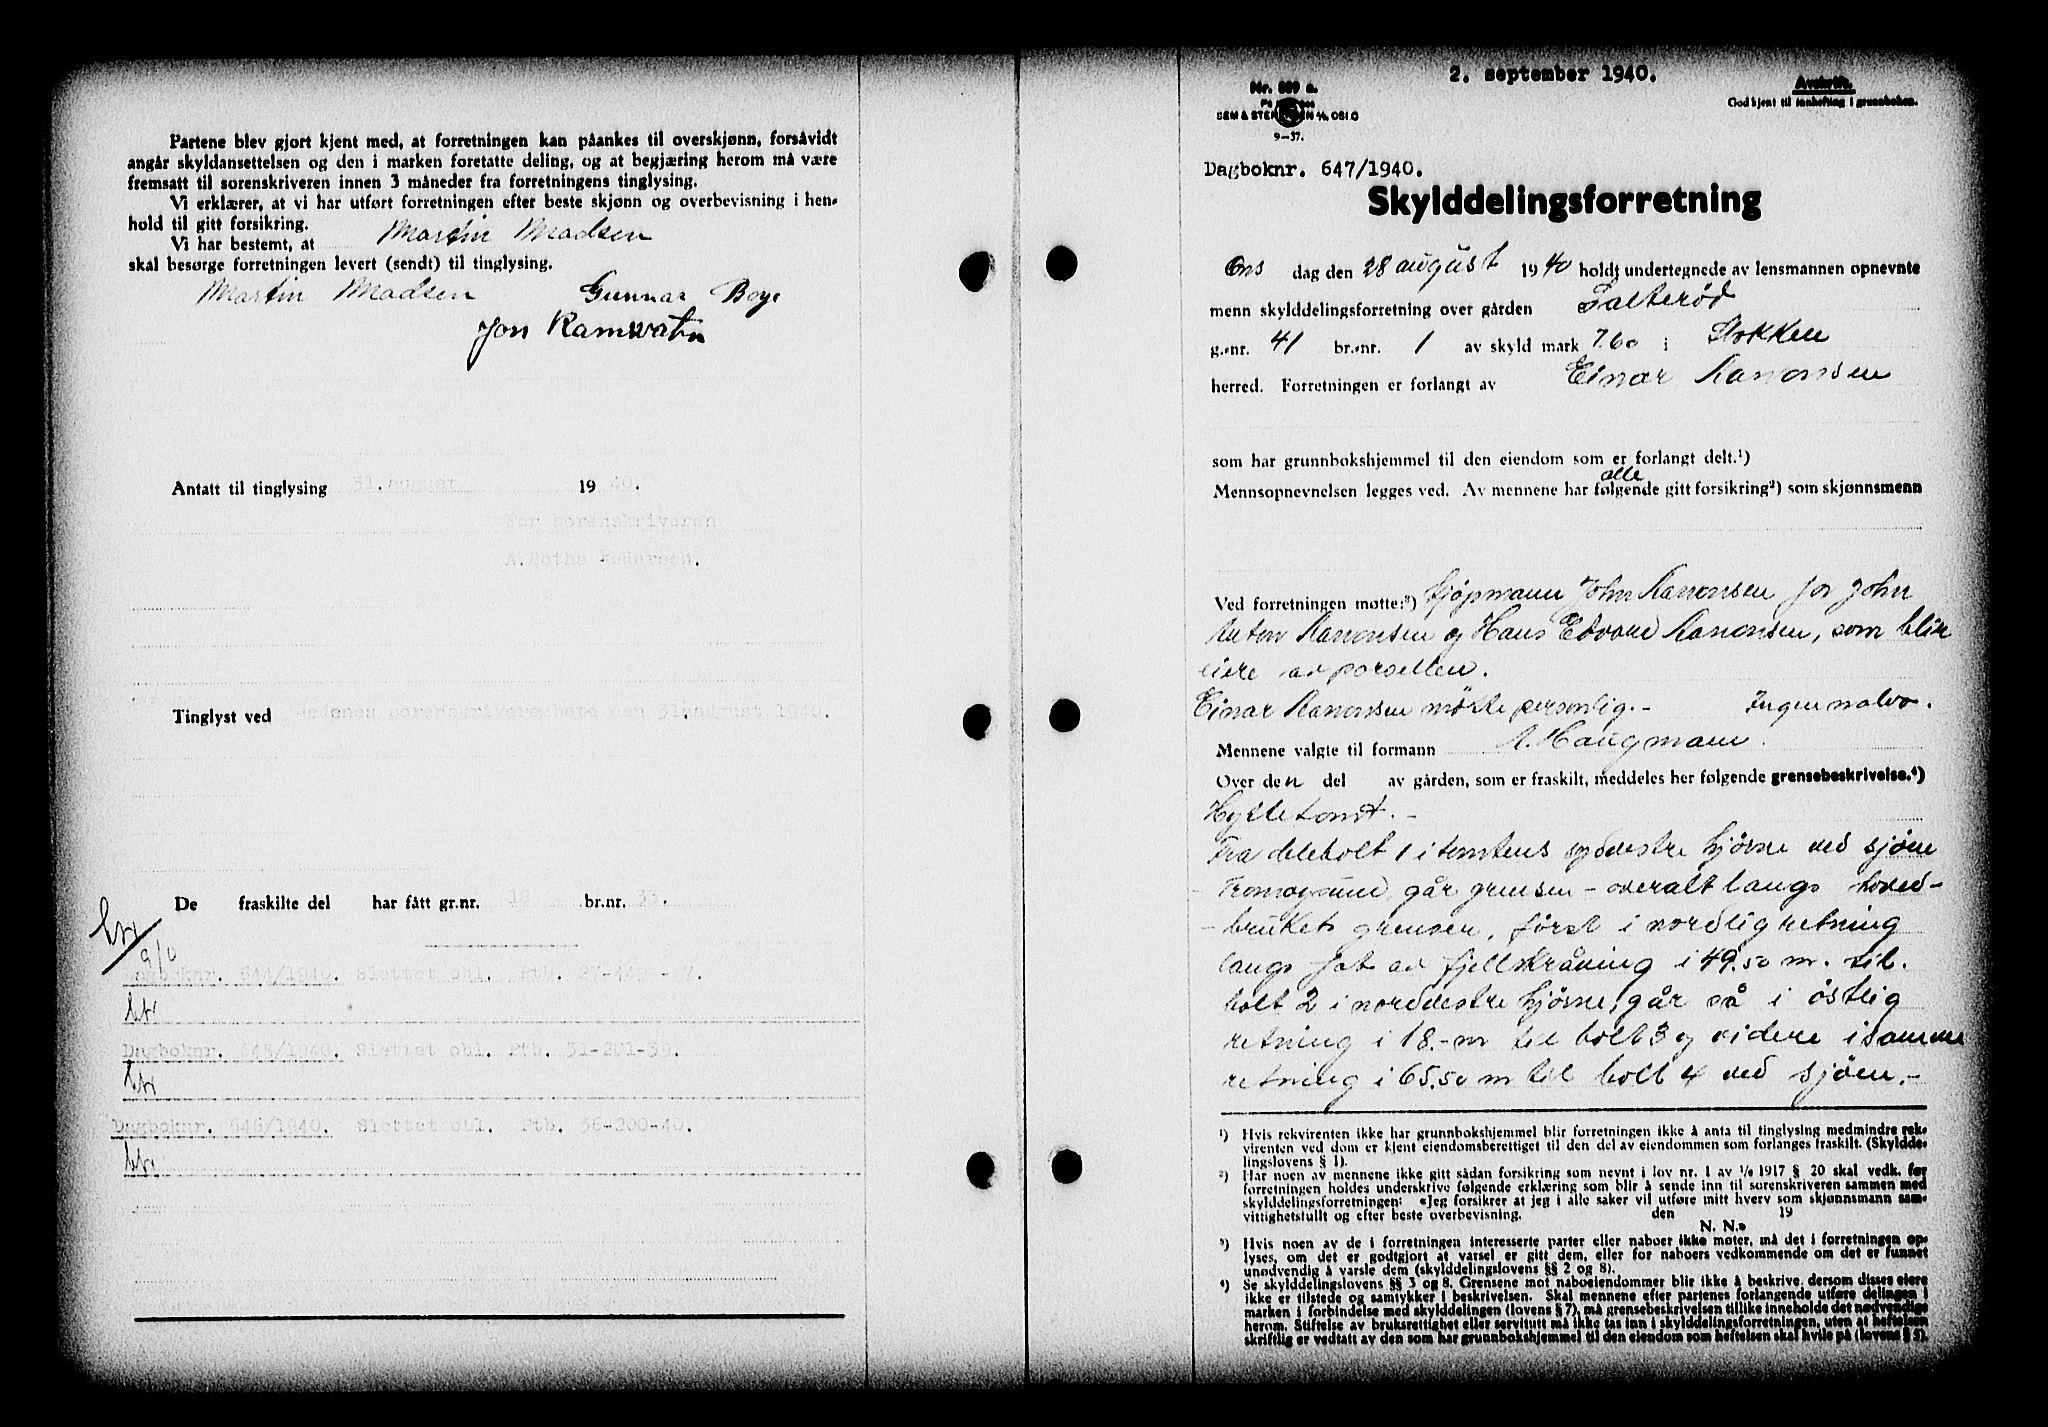 Partene blev gjort kjent med, at forretningen kan påankes til overskjønn, forsåvidt
angår skyldansettelsen og den i marken foretatte deling, og at begjæring herom må være
fremsatt til sorenskriveren innen 3 måneder fra forretningens tinglysing.
Vi erklærer, at vi har utført forretningen efter beste skjønn og overbevisning i hen-
hold til gitt forsikring.
Vi har bestemt, at Martin Madsen
skal besørge forretningen levert (sendt) til tinglysing.
Martin Madsen Gunnar Boye
Jon Ramsvatn
Antatt til tinglysing 31. august 19 40.
For sorenskriveren
A. Bothe Pedersen.
Tinglyst ved Nedenes sorenskriverembete den 31. august 1940.
De fraskilte del har fått gr.nr. 18 br.nr. 33.
Dagboknr. 644/1940. Slettet obl. Ptb. 27-449 - 7.
Dagboknr. 645/1940. Slettet obl. Ptb. 31-201-39.
Dagboknr. 646/1940. Slettet obl. Ptb. 36-200-40.
2. september 1940.
Nr. 889 a.
Avskrift.
God kjent til innhefting i grunnboken.
SEM & STENERSEN A/S. OSLO
9-37.
Dagboknr. 647/1940.
Skylddelingsforretning
Ons dag den 28 august 19 40 holdt undertegnede av lensmannen opnevnte
menn skylddelingsforretning over gården Salterød
g.-nr. 41 br.-nr. 1 av skyld mark 7.60 i Stokken
herred. Forretningen er forlangt av Einar Aanonsen
som har grunnbokshjemmel til den eiendom som er forlangt delt.¹)
alle
Mennsopnevnelsen legges ved. Av mennene har følgende gitt forsikring²) som skjønnsmenn
Ved forretningen møtte:³) kjøpmann John Aanonsen for John
Anton Aanonsen og Hans Edvard Aanonsen, som blir
eiere av parsellen.
Einar Aanonsen møtte personlig.- Ingen naboer.
Mennene valgte til formann A. Haugmann.
Over den del av gården, som er fraskilt, meddeles her følgende grensebeskrivelse.⁴)
Hyttetomt.-
Fra delebolt 1 i tomtens sydvestre hjørne ved sjøen
Tromøysund går grensen - overalt langs hoved-
- brukets grenser, først i nordlig retning
langs fot av fjellskråning i 49.50 m. til.
bolt 2 i nordvestre hjørne, går så i østlig
retning i 18.-m til bolt 3 og videre i samme
retning i 65.50 m til bolt 4 ved sjøen.-
¹) Hvis rekvirenten ikke har grunnbokshjemmel blir forretningen ikke å anta til tinglysing medmindre rek-
virenten ved dom er kjent eiendomsberettiget til den del av eiendommen som forlanges fraskilt. (Skyldde-
lingslovens § 1).
²) Har noen av mennene ikke gitt sådan forsikring som nevnt i lov nr. 1 av 1/6 1917 § 20 skal vedk. før
forretningen holdes underskrive følgende erklæring som blir å sende inn til sorenskriveren sammen med
skylddelingsforretningen: «Jeg forsikrer at jeg i alle saker vil utføre mitt hverv som skjønnsmann sam-
vittighetsfullt og efter beste overbevisning. den 19
N. N.»
³) Hvis noen av de i forretningen interesserte parter eller naboer ikke møter, må det i forretningen op-
lyses, om det er godtgjort at varsel er gitt dem, eller for naboers vedkommende om det er funnet
unødvendig å varsle dem (skylddelingslovens §§ 2 og 8).
⁴) Se skylddelingslovens §§ 3 og 8. Grensene mot naboeiendommer blir ikke å beskrive, dersom disses eiere
ikke er tilstede og samtykker i beskrivelsen. Skal mennene efter partenes forlangende utføre delingen i
marken i forbindelse med skylddelingen (lovens § 7), må grensebeskrivelsen tillike inneholde det nødvendige
herom. Stiftelse av bruksrettighet eller servitutt må ikke tas inn i skylddelingsforretningen, uten at heftelsen
skriftlig er vedtatt av den som har grunnbokshjemmel til den eiendom som heftelsen skal hvile på (lovens § 5).